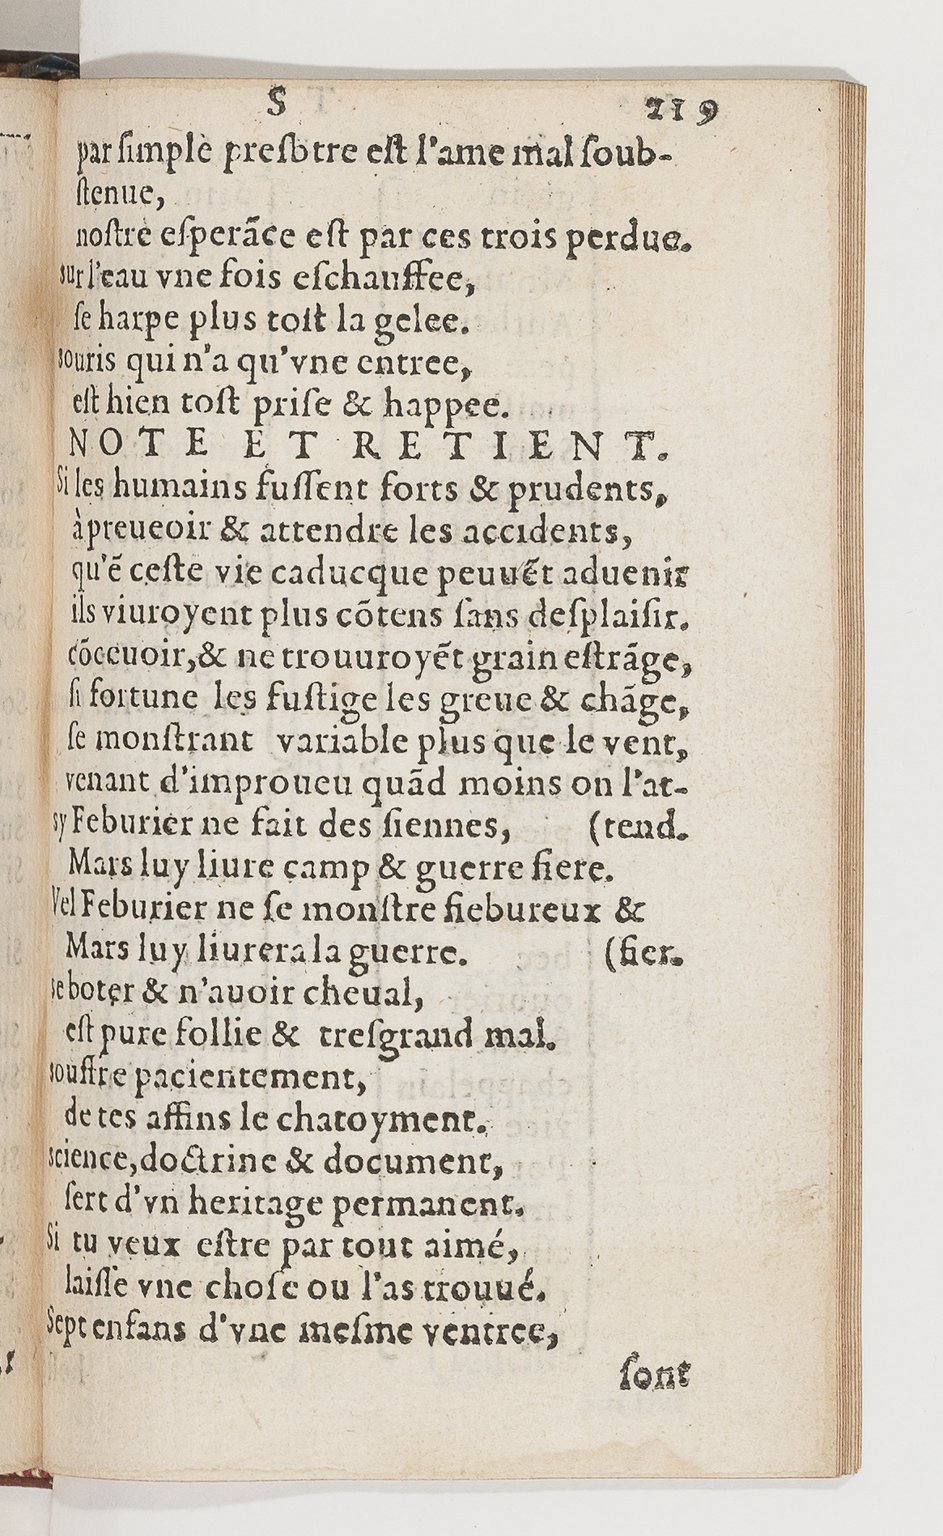 S 219
par ſimple preſbtre eſt l'ame mal ſoub-
ſtenue,
noſtre eſperãce eſt par ces trois perdue.
sur l'eau vne fois eſchauffee,
ſe harpe plus toſt la gelee.
souris qui n'a qu'vne entree,
eſt hien toſt priſe & happee.
NOTE ET RETIENT.
Si les humains fuſſent forts & prudents,
à preueoir & attendre les accidents,
qu'ẽ ceſte vie caducque peuuẽt aduenir
ils viuroyent plus cõtens ſans deſplaiſir.
cõceuoir,& ne trouuroyẽt grain eſtrãge,
ſi fortune les fuſtige les greue & chãge,
ſe monſtrant variable plus que le vent,
venant d'improueu quãd moins on l'at-
sy Feburier ne fait des ſiennes, (tend.
Mars luy liure camp & guerre fiere.
Vel Feburier ne ſe monſtre fiebureux &
Mars luy liurera la guerre. (fier.
se boter & n'auoir cheual,
eſt pure follie & treſgrand mal.
souffre pacientement,
de tes affins le chatoyment.
science,doctrine & document,
ſert d'vn heritage permanent.
Si tu veux eſtre par tout aimé,
laiſſe vne choſe ou l'as trouué.
Sept enfans d'vne meſme ventree,
ſont